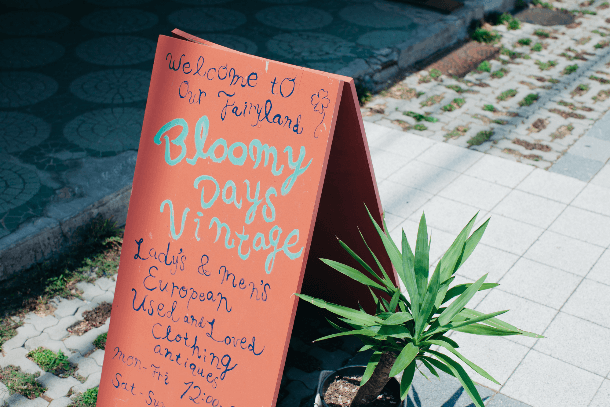 Welcome to
Our Fairyland
Bloomy
Days
Vintage
Lady's & Men's
European
Used and Loved
Clothing
antiques
Mon-Fri 12:00
Sat-Sun